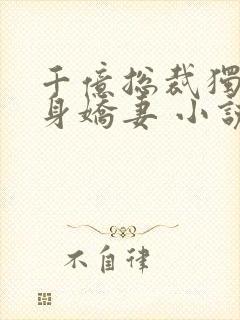 千億總裁獨
身嬌妻 小說
不自律